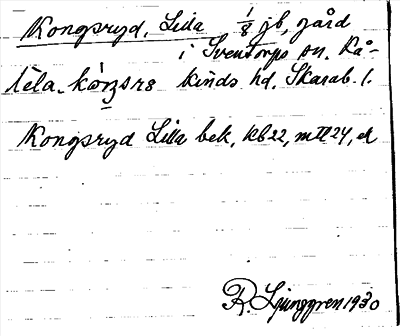 Kongsryd, Lilla 1/8 jb, gård
i Sventorps sn. Kå-
kinds hd. Skarab. l.
Kongsryd Lilla bek, kb 22, mtl 24, ek
R. Ljunggren 1930